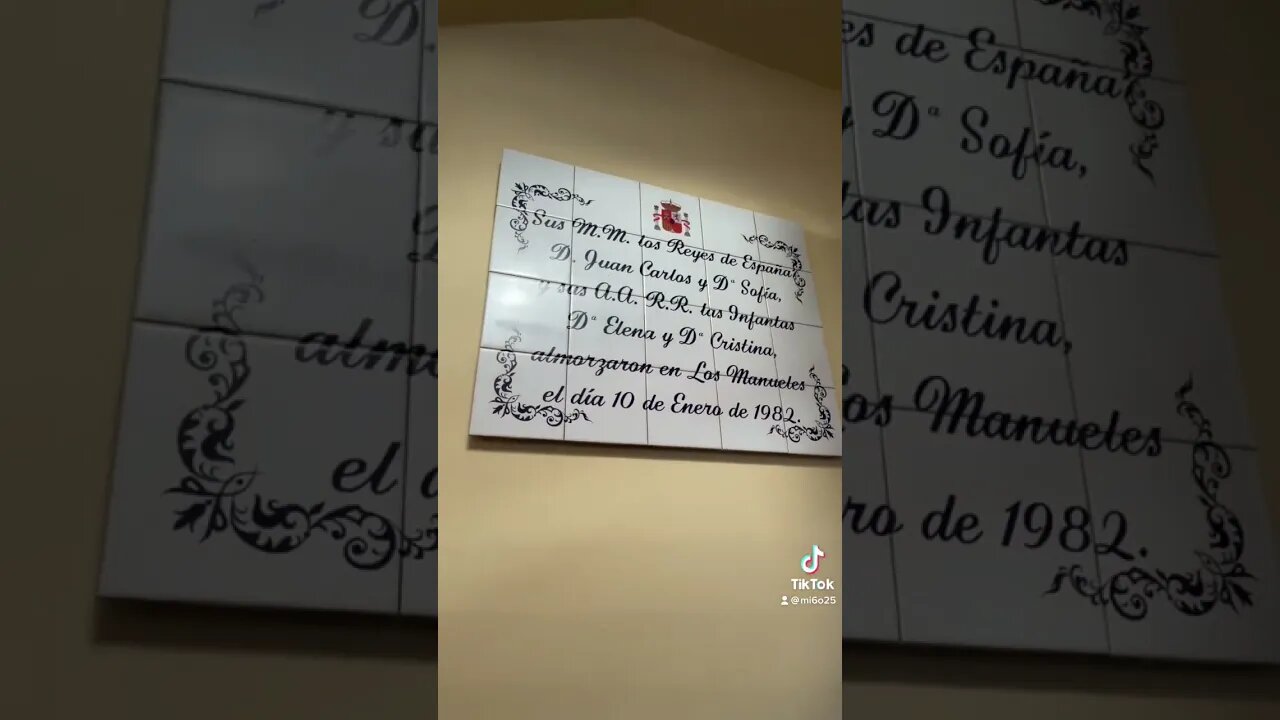 Sus M.M. los Reyes de España
D. Juan Carlos y Dª Sofía,
y sus A.A. R.R. las Infantas
Dª Elena y Dª Cristina,
almorzaron en Los Manueles
el día 10 de Enero de 1982.
TikTok
@mi6o25